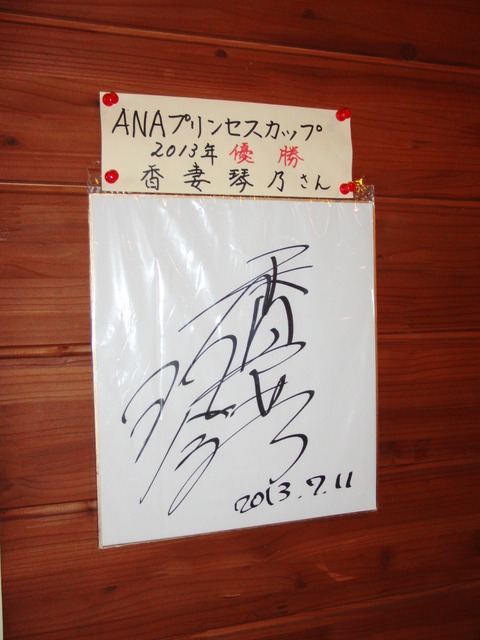 ANAプリンセスカップ
2013年 優勝
香妻琴乃さん
香妻
琴乃
2013.7.11